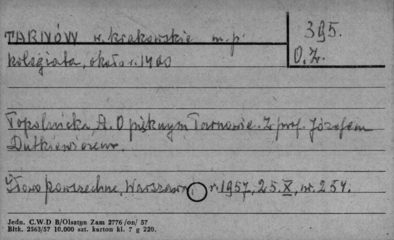 TARNÓW w. krakowskie m. p. 395.
kolegiata, około r. 1400 O.Z.
Topolnicka, A. O pięknym Tarnowie. Z prof. Józefem
Dutkiewiczem.
Słowo powszechne, Warszawa, r. 1957, 25.X, nr. 254.
Jedn. C.W.D B/Olsztyn Zam 2776/on/57
Bltk. 2563/57 10.000 szt. karton kl. 7 g 220.